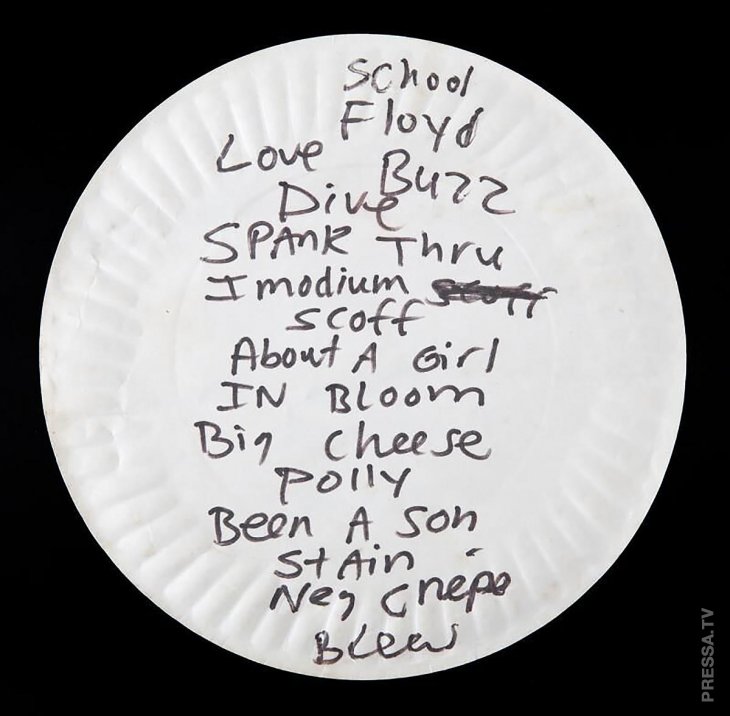 School
Floyd
Love Buzz
Dive
SPAnk Thru
Imodium
Scoff
About A Girl
IN Bloom
Big Cheese
Polly
Been A Son
StAin
Neg Crepe
BLew
PRESSA.TV